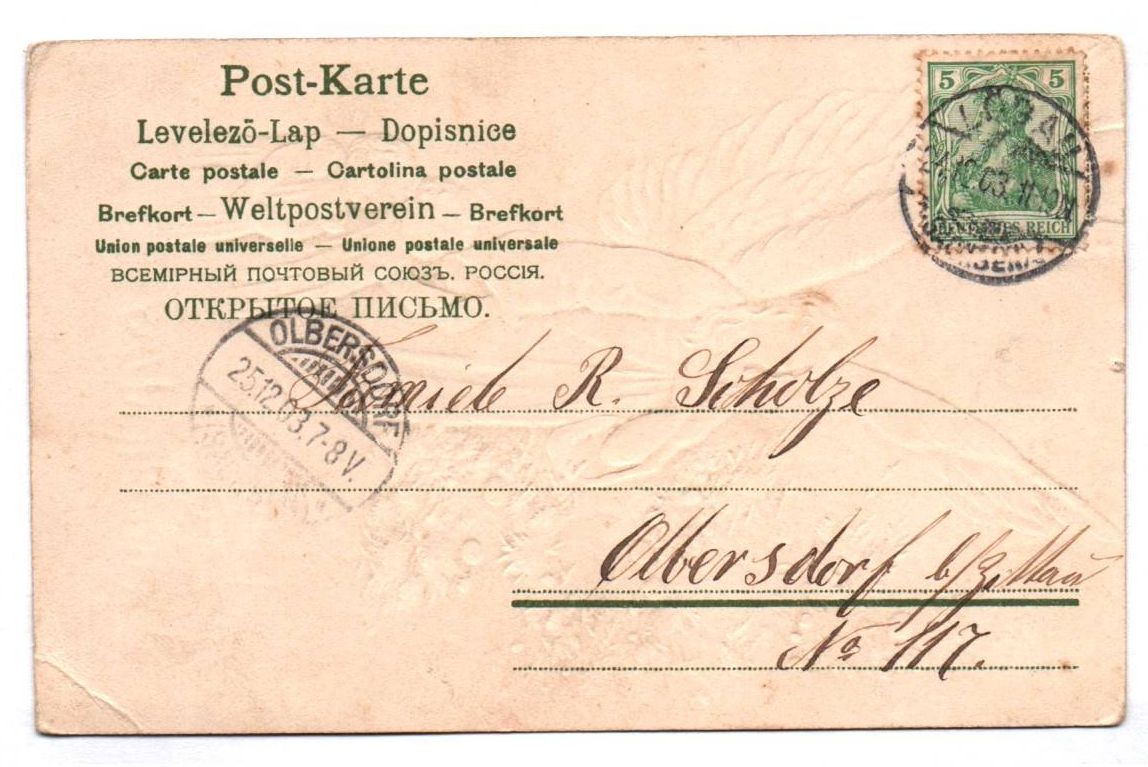 Post-Karte
Levelezõ-Lap — Dopisnice
Carte postale — Cartolina postale
Brefkort — Weltpostverein — Brefkort
Union postale universelle — Unione postale universale
ВСЕМІРНЫЙ ПОЧТОВЫЙ СОЮЗЪ. РОССІЯ.
ОТКРЫТОЕ ПИСЬМО.
5 5
DEUTSCHES REICH
LÖBAU
24.12.03.
OLBERSDORF
25.12.03.7-8V.
R. Scholze
Olbersdorf b/Zittau
No 117.